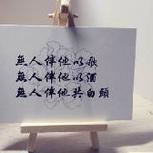 無人伴他以歌
無人伴他以酒
無人伴他共白頭